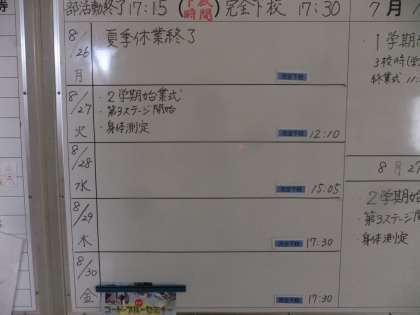 部活動終了 17:15 (下校時間) 完全下校 17:30
8/26 月 夏季休業終了
完全下校
8/27 火
・2学期始業式
・第3ステージ開始
・身体測定
完全下校 12:10
8/28 水
完全下校 15:05
8/29 木
完全下校 17:30
8/30 金
完全下校 17:30
7月
・1学期終
3校時(
終業式 11:
8月27
2学期始
・第3ステージ開
・身体測定